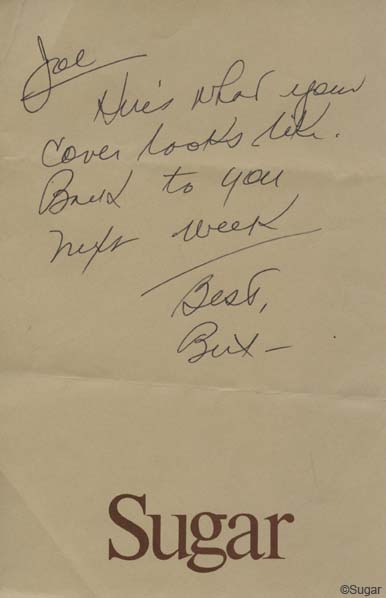 Joe
Here's what your
cover looks like.
Back to you
next week
Best,
Bix-
Sugar
©Sugar